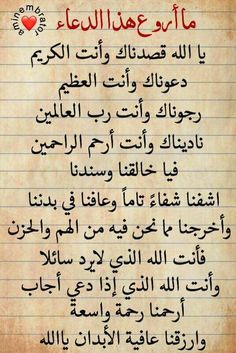 ما أروع هذا الدعاء
aminembratar
يا الله قصدناك وأنت الكريم
دعوناك وأنت العظيم
رجوناك وأنت رب العالمين
ناديناك وأنت أرحم الراحمين
فيا خالقنا وسندنا
اشفنا شفاءً تاماً وعافنا في بدننا
وأخرجنا مما نحن فيه من الهم والحزن
فأنت الله الذي لايرد سائلا
وأنت الله الذي إذا دعي أجاب
أرحمنا رحمة واسعة
وارزقنا عافية الأبدان ياالله